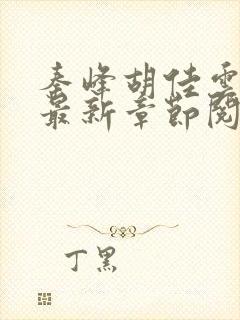 秦峰胡佳雲
最新章節閱
丁黑